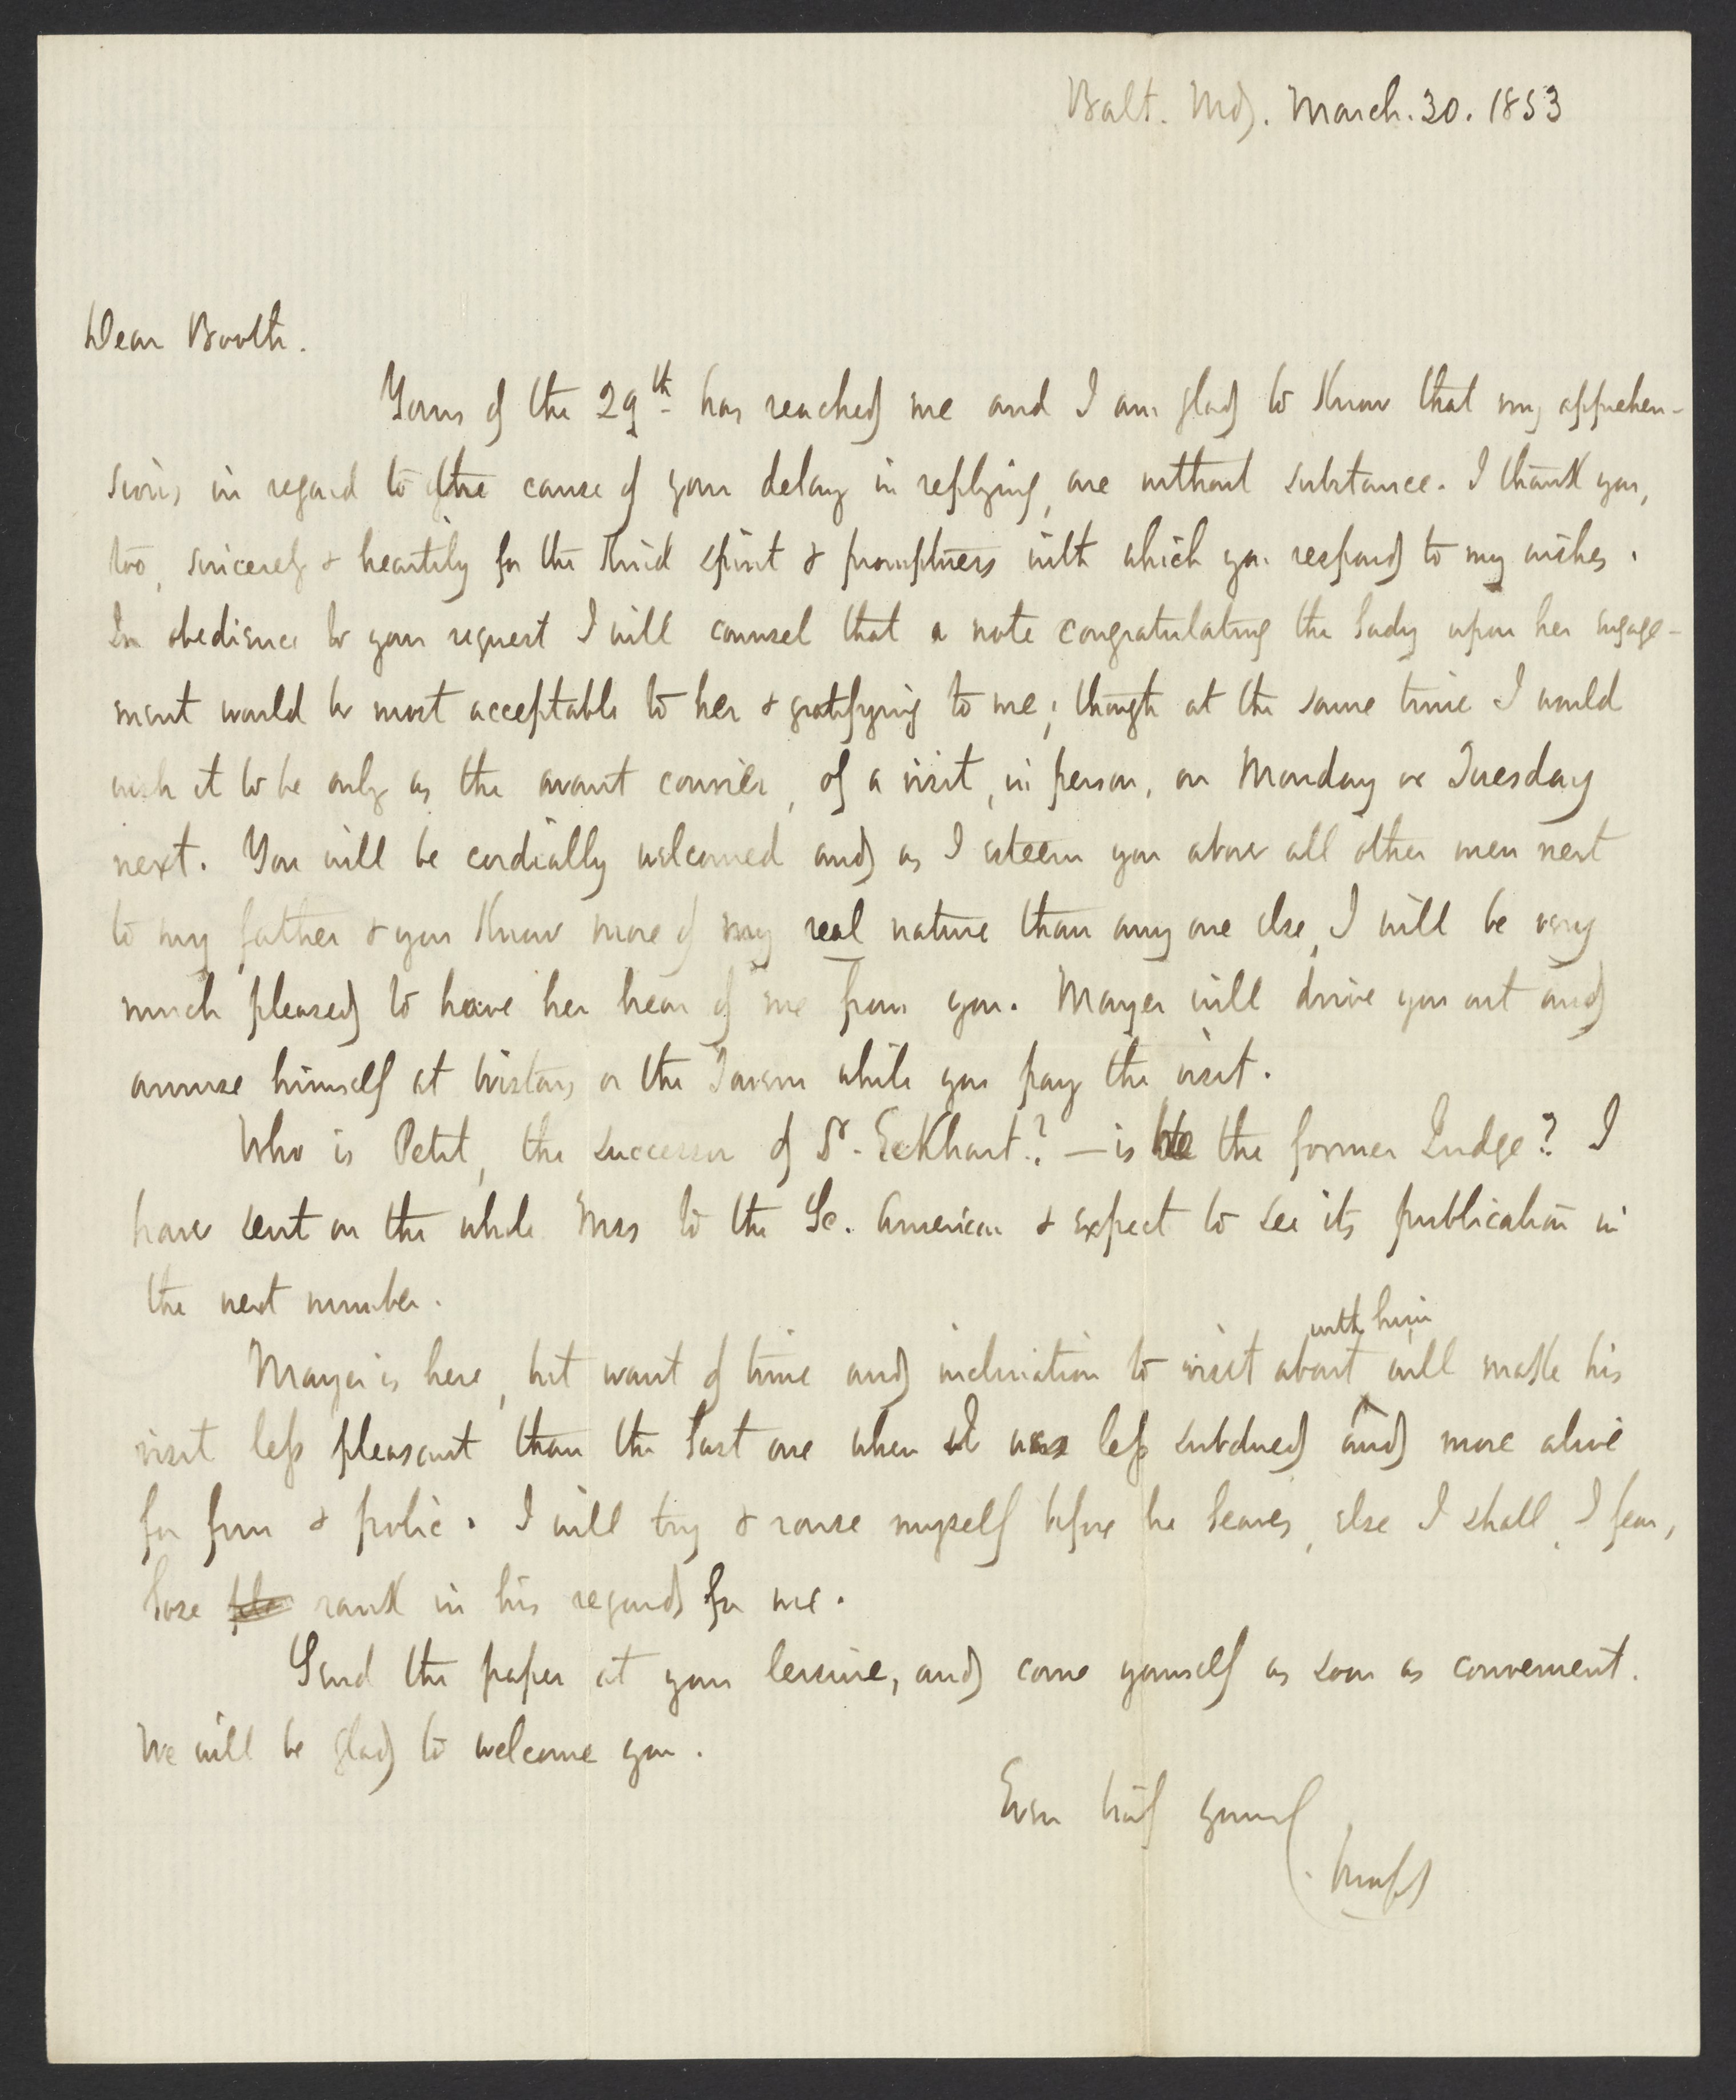 Balt. Md. March. 30. 1853
Dear Booth.
Yours of the 29th has reached me and I am glad to know that my apprehen-
sions in regard to the cause of your delay in replying, are without substance. I thank you,
too, sincerely & heartily for the kind spirit & promptness with which you respond to my wishes.
In obedience to your request I will counsel that a note congratulating the lady upon her engage-
ment would be most acceptable to her & gratifying to me; though at the same time I would
wish it to be only as the avant courier, of a visit, in person, on Monday or Tuesday
next. You will be cordially welcomed and as I esteem you above all other men next
to my father & you know more of my real nature than any one else, I will be very
much pleased to have her hear of me from you. Mayer will drive you out and
amuse himself at or the Tavern while you pay the visit.
Who is Petit, the successor of Dr. Eckhart? — is he the former Judge? I
have sent on the whole Mss to the Sc. American & expect to see its publication in
the next number.
with him
Mayer is here, but want of time and inclination to visit about ^ will make his
visit less pleasant than the last one when I was less subdued and more alive
for fun & frolic. I will try & rouse myself before he leaves, else I shall, I fear,
lose rank in his regards for me.
Send the paper at your leisure, and come yourself as soon as convenient.
We will be glad to welcome you.
Ever truly yours